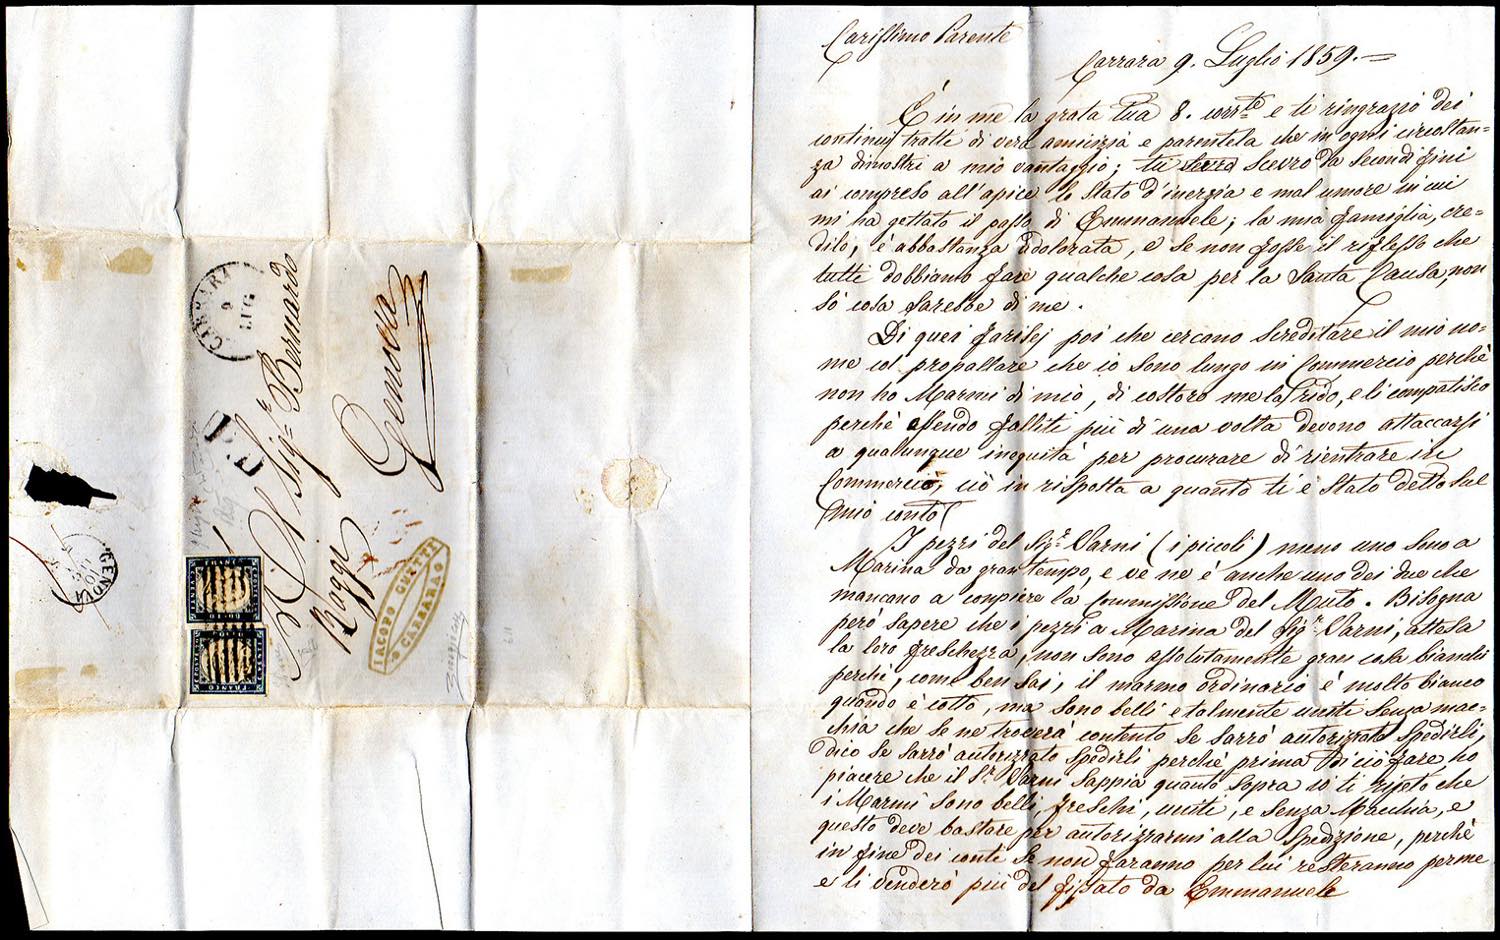 CARRARA
9
LUG
P.D.
Al Sig.r Bernardo
Raggi
Genova
IACOPO CUCTTI
CARRARA
GENOVA
10
LUG
Carissimo Parente
Carrara 9. Luglio 1859.=
È in me la grata tua 8. corr.te e ti ringrazio dei
continui tratti di vera amicizia e parentela che in ogni circostan=
za dimostri a mio vantaggio; tu scevro da secondi fini
ai compreso all'apice lo stato d'inerzia e mal umore in cui
mi ha gettato il passo di Emmanuele; la mia famiglia, cre=
dilo, è abbastanza adolorata, e se non fosse il riflesso che
tutti dobbiamo fare qualche cosa per la Santa Causa, non
sò cosa sarebbe di me.
Di quei farisej poi che cercano screditare il mio no=
me col propallare che io sono lungo in Commercio perchè
non ho Marmi di mio, di costoro me la rido, e li compatisco
perchè essendo falliti più di una volta devono attaccarsi
a qualunque iniquità per procurare di rientrare in
Commercio, ciò in risposta a quanto ti è stato detto sul
mio conto
I pezzi del Sig.r Varni (i piccoli) meno uno sono a
Marina da gran tempo, e ve ne è anche uno dei due che
mancano a conpiere la Commissione del Muto. Bisogna
però sapere che i pezzi a Marina del Sig.r Varni, attesa
la loro freschezza, non sono assolutamente gran cosa bianchi
perchè, come ben sai, il marmo ordinario è molto bianco
quando è cotto, ma sono belli e talmente uniti senza mac=
chia che se ne troverà contento se sarrò autorizzato spedirli,
dico se sarrò autorizzato spedirli perchè prima di ciò fare, ho
piacere che il S.r Varni sappia quanto sopra io ti ripeto che
i Marmi sono belli freschi, uniti, e senza Macchia, e
questo deve bastare per autorizzarmi alla spedizione, perchè
in fine dei conti se non faranno per lui resteranno per me
e li venderò più del fissato da Emmanuele